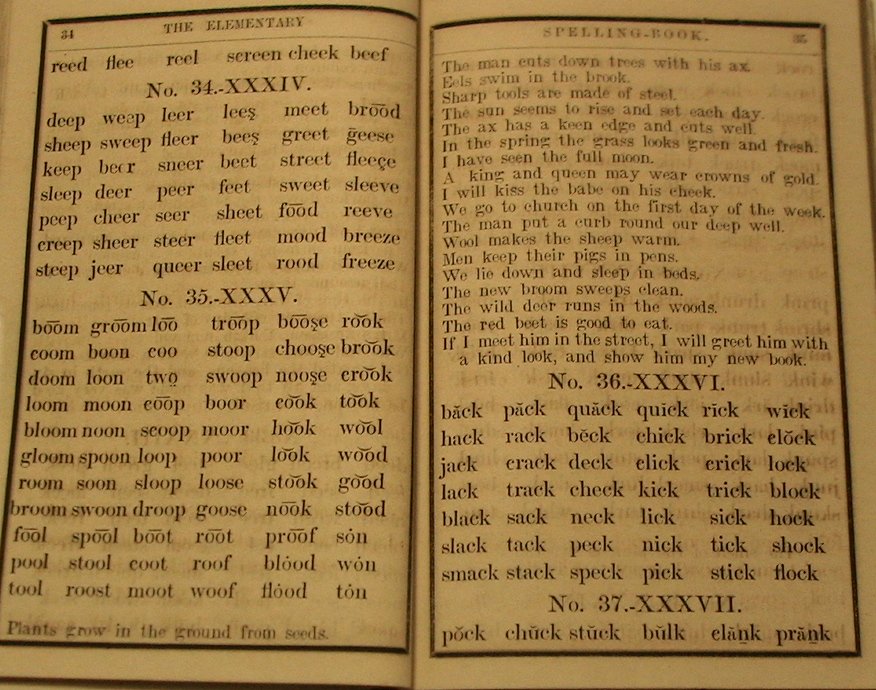 34 THE ELEMENTARY
reed flee reel screen cheek beef
No. 34.-XXXIV.
deep weep leer lees̱ meet bro͞od
sheep sweep fleer bees̱ greet ḡeese
keep beer sneer beet street fleeçe
sleep deer peer feet sweet sleeve
peep cheer seer sheet fo͞od reeve
creep sheer steer fleet mood breeze
steep jeer queer sleet rood freeze
No. 35.-XXXV.
bo͞om gro͞om lo͞o tro͞op bo͞os̱e ro͝ok
coom boon coo stoop choos̱e bro͝ok
doom loon two̤ swoop noos̱e cro͝ok
loom moon co͞op boor co͝ok to͝ok
bloom noon scoop moor ho͝ok wo͝ol
gloom spoon loop poor lo͝ok wo͝od
room soon sloop loose sto͝ok go͝od
broom swoon droop goose no͝ok sto͝od
fo͞ol spo͞ol bo͞ot ro͞ot pro͞of sȯn
pool stool coot roof blȯod wȯn
tool roost moot woof flȯod tȯn
Plants grow in the ground from seeds.
SPELLING-BOOK. 35
The man cuts down trees with his ax.
Eels swim in the brook.
Sharp tools are made of steel.
The sun seems to rise and set each day.
The ax has a keen edge and cuts well.
In the spring the grass looks green and fresh.
I have seen the full moon.
A king and queen may wear crowns of gold.
I will kiss the babe on his cheek.
We go to church on the first day of the week.
The man put a curb round our deep well.
Wool makes the sheep warm.
Men keep their pigs in pens.
We lie down and sleep in beds.
The new broom sweeps clean.
The wild deer runs in the woods.
The red beet is good to eat.
If I meet him in the street, I will greet him with
a kind look, and show him my new book.
No. 36.-XXXVI.
băck păck quăck quĭck rĭck wĭck
hack rack bĕck chick brick clŏck
jack crack deck click crick lock
lack track check kick trick block
black sack neck lick sick hock
slack tack peck nick tick shock
smack stack speck pick stick flock
No. 37.-XXXVII.
pŏck chŭck stŭck bŭlk clăṉk prăṉk